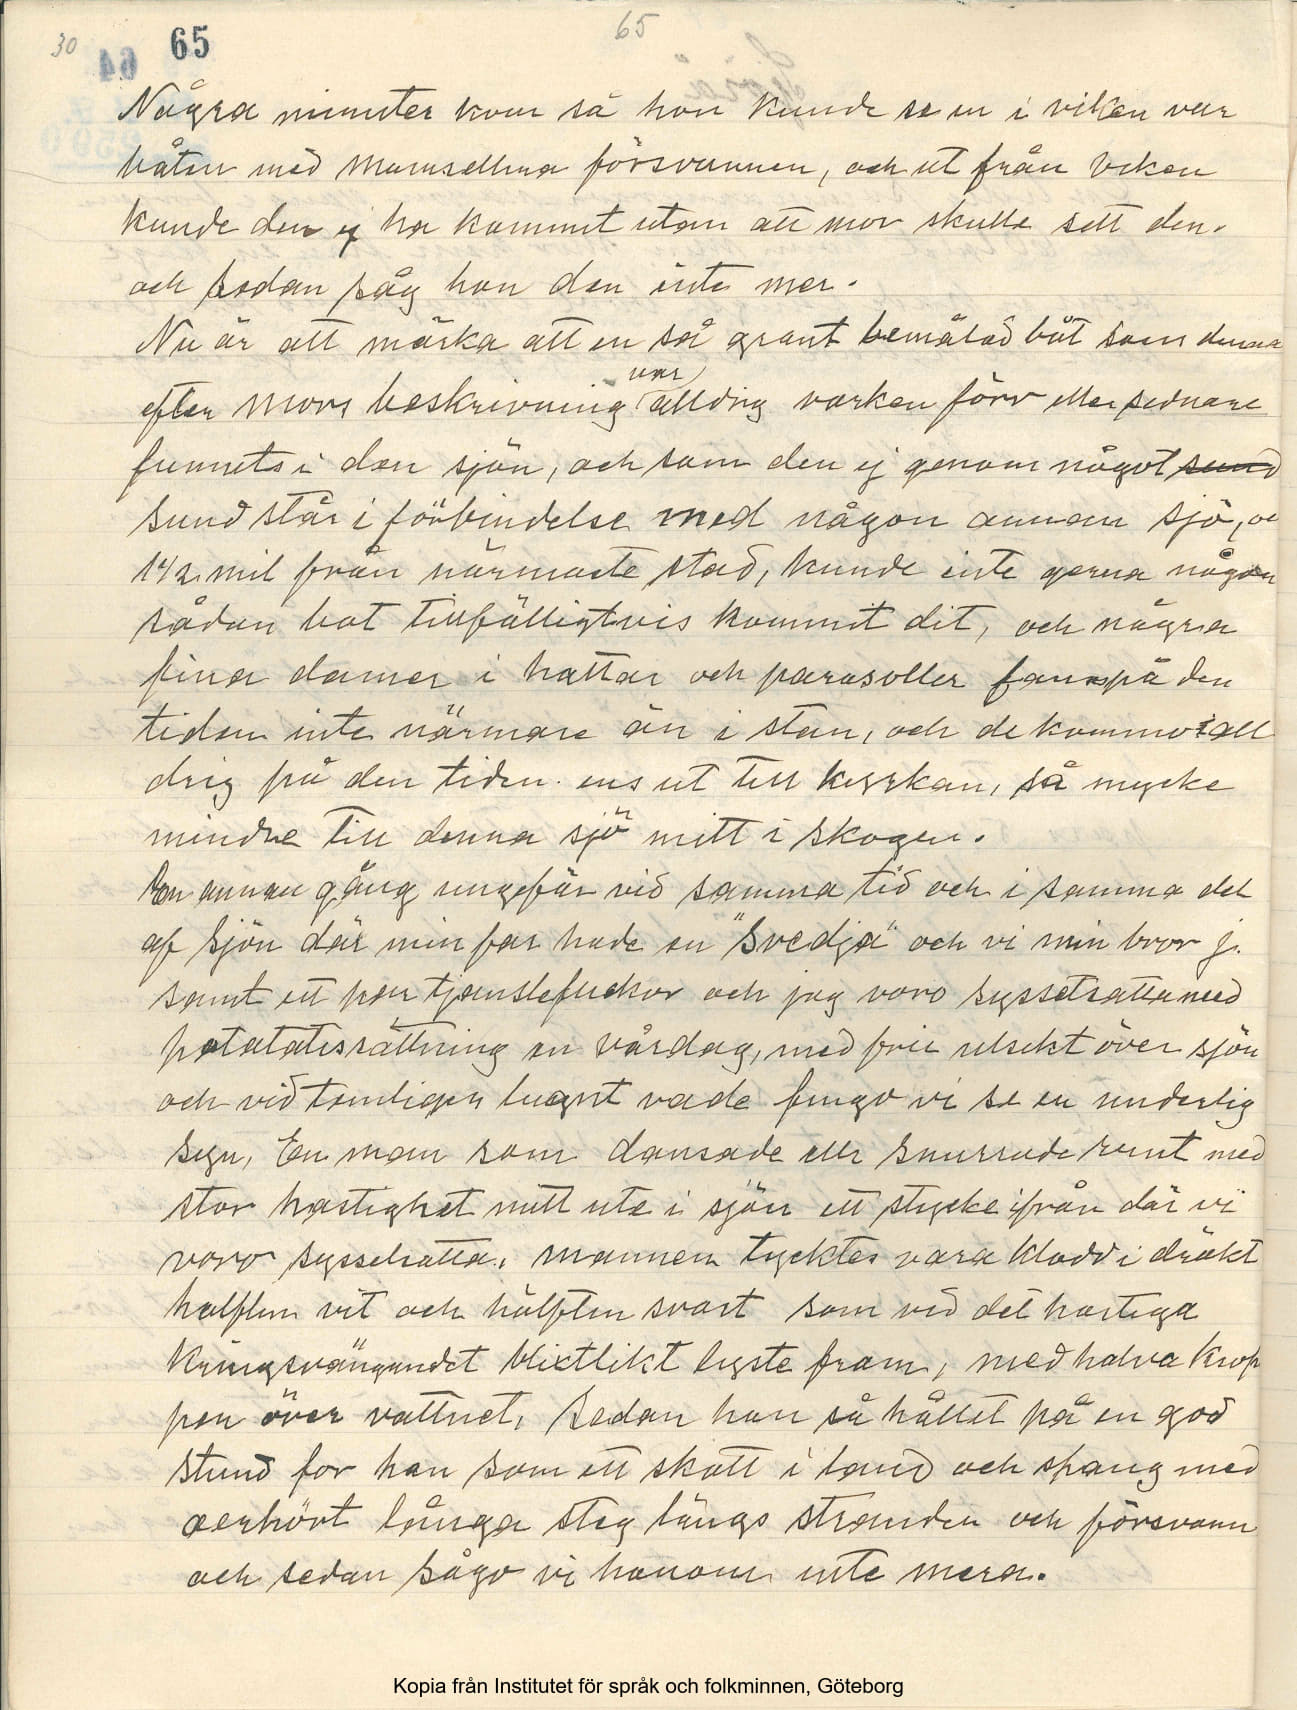 30 65 65
64
Några minuter kom så hon kunde se in i viken var
båten med mamsellerna försvunnen, och ut från viken
kunde den ej ha kommit utan att mor skulle sett den.
och sedan såg hon den inte mer.
Nu är att märka att en så grant bemålad båt som denna
var
efter mors beskrivning alldrig varken förr eller sednare
funnets i den sjön, och som den ej genom något sund
sund står i förbindelse med någon annan sjö, oc
1 1/2 mil från närmaste stad, kunde inte gerna någon
sådan bot tillfälligtvis kommit dit, och några
fina damer i hattar och parasoller fans på den
tiden inte närmare än i stan, och de kommo all
drig på den tiden ens ut till kyrkan, så mycke
mindre till denna sjö mitt i skogen.
En annan gång ungefär vid samma tid och i samma del
af sjön där min far hade en "Svedja" och vi min bror j.
samt ett par tjänsteflickor och jag voro sysselsatta med
potatatissättning en vårdag, med fri utsikt över sjön
och vid temligen lugnt vade fingo vi se en underlig
syn, En man som dansade eller snurrade runt med
stor hastighet mitt ute i sjön ett stycke ifrån där vi
voro sysselsatta, mannen tycktes vara klädd i dräkt
halften vit och hälften svart som vid det hastiga
kringsvängandet blixtlikt lyste fram, med halva krop
pen över vattnet, Sedan han så hållit på en god
stund for han som ett skott i land och sprang med
oerhört långa steg längs stranden och försvann
och sedan sågo vi honom inte mera.
Kopia från Institutet för språk och folkminnen, Göteborg